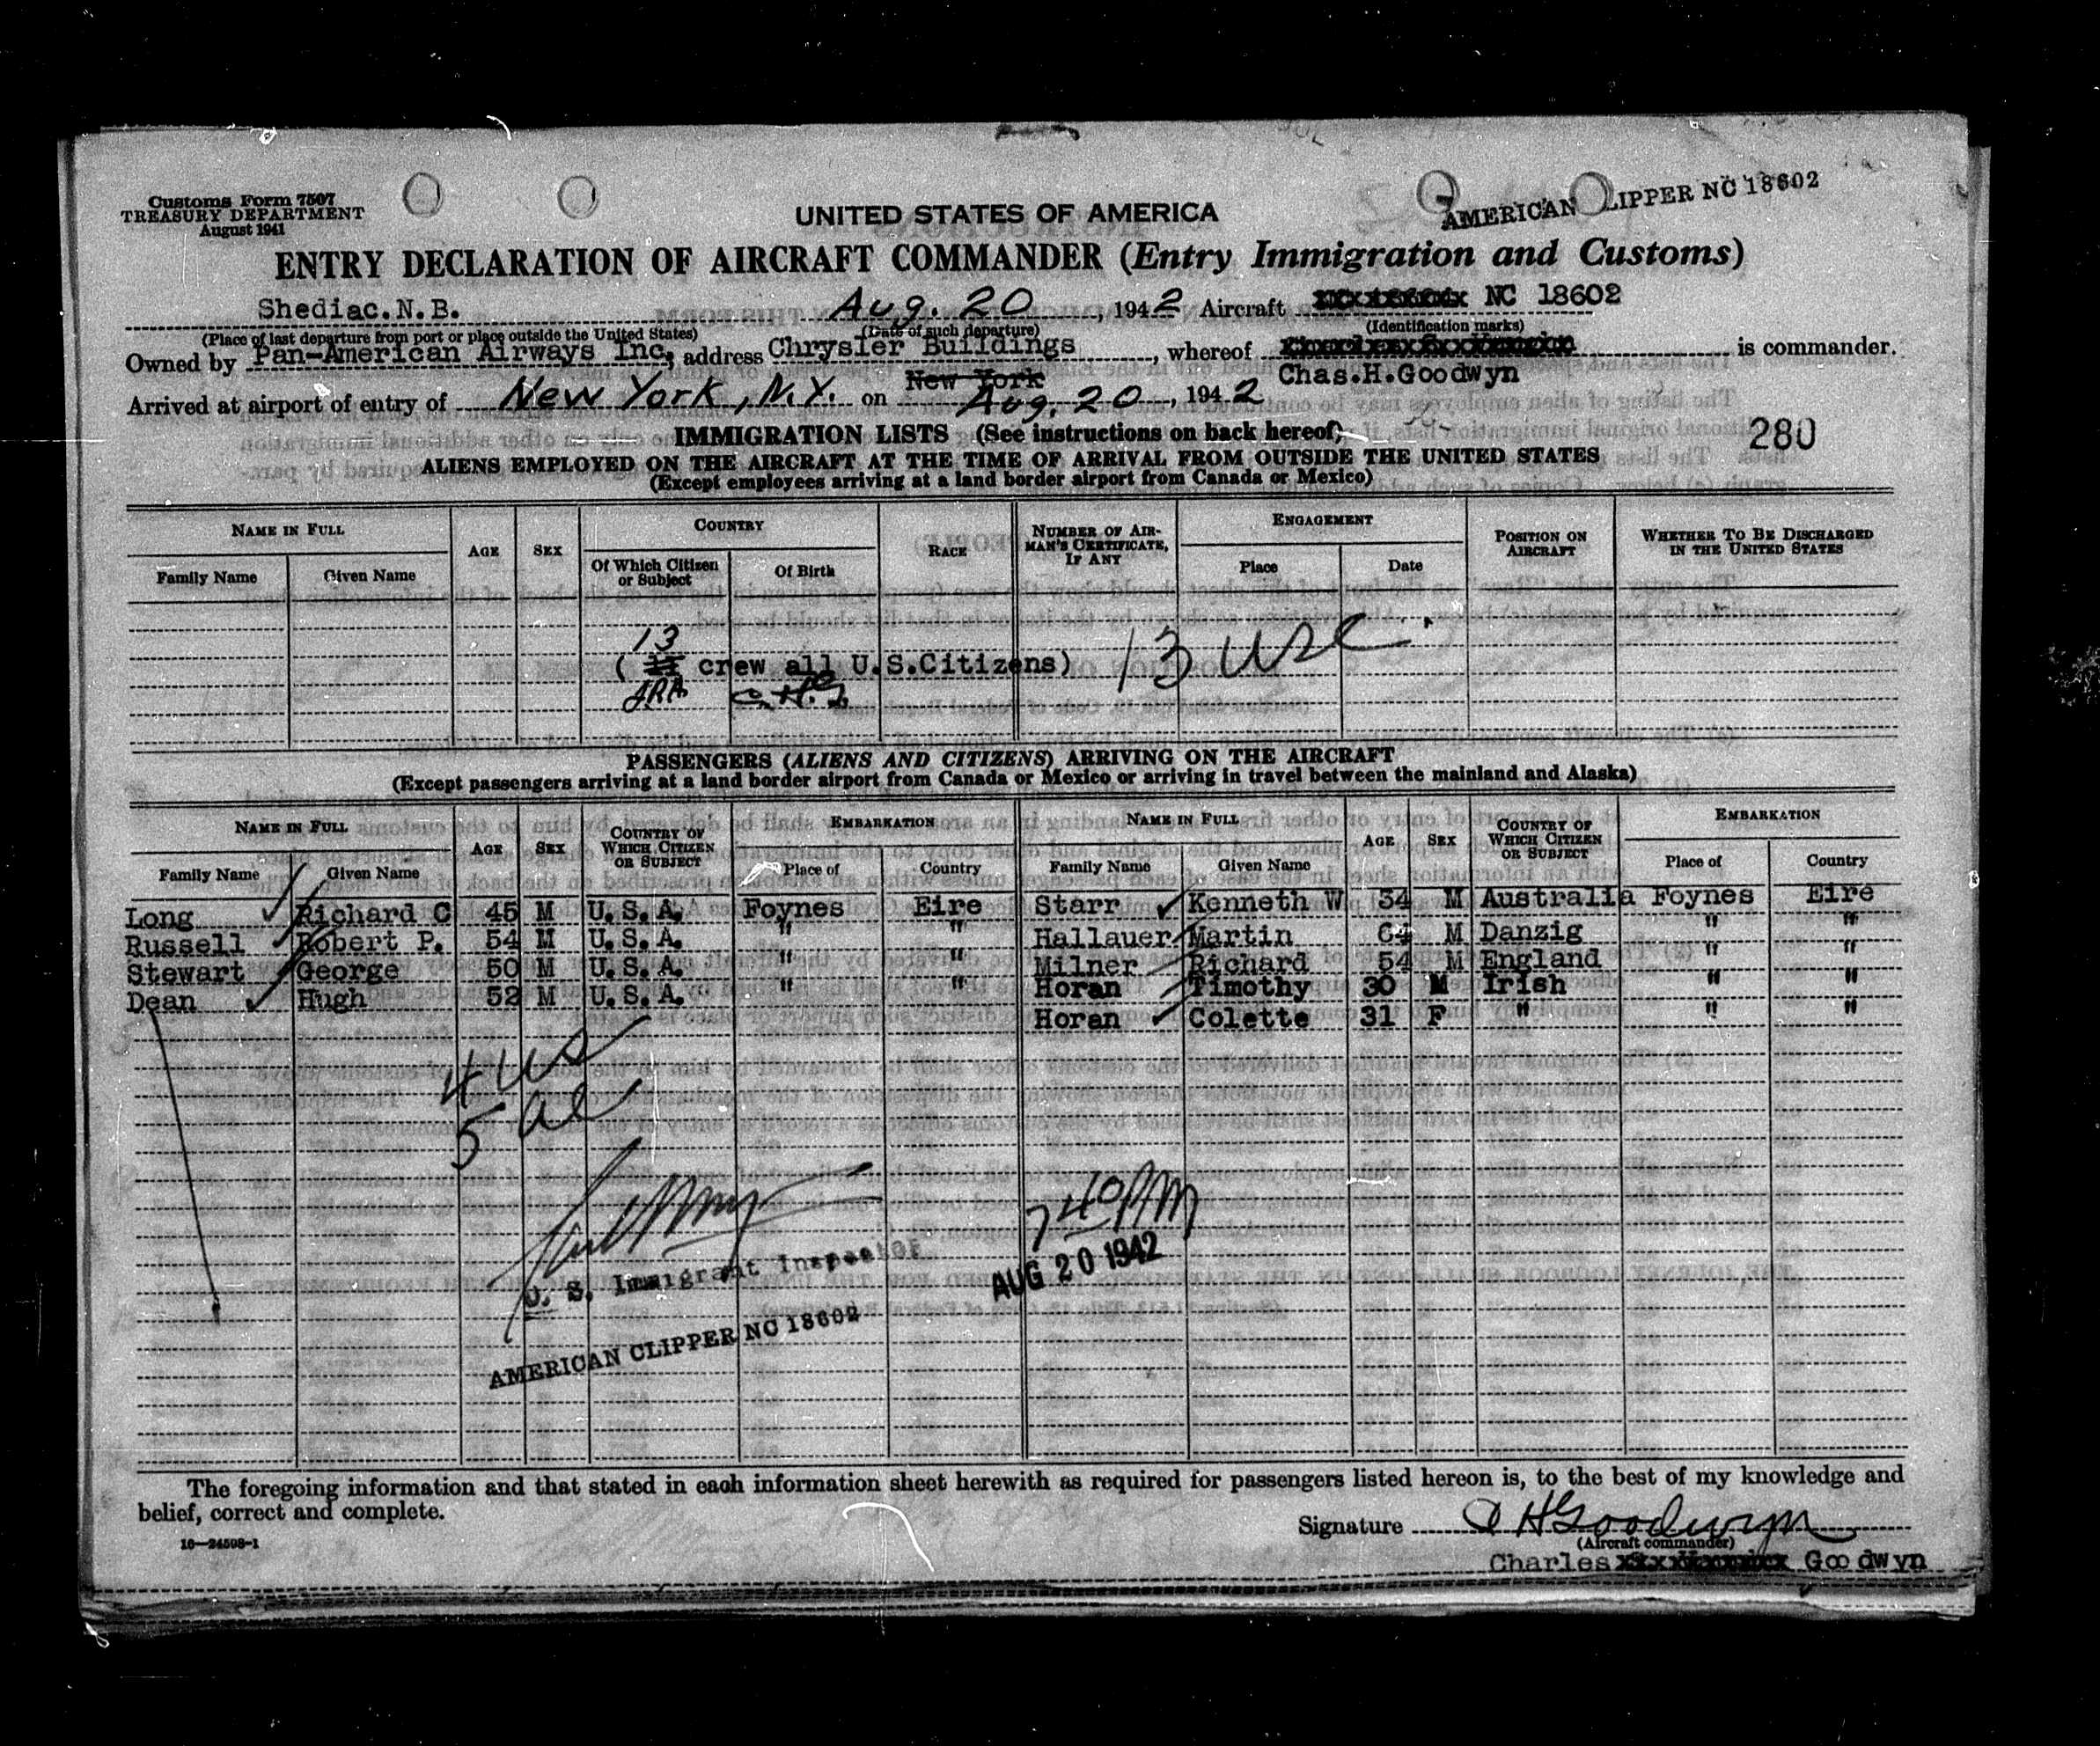 Customs Form 7507
TREASURY DEPARTMENT
August 1941
UNITED STATES OF AMERICA
AMERICAN CLIPPER NC 18602
ENTRY DECLARATION OF AIRCRAFT COMMANDER (Entry Immigration and Customs)
Shediac.N.B. Aug. 20, 1942 Aircraft NC 18602
(Place of last departure from port or place outside the United States) (Date of such departure) (Identification marks)
Owned by Pan-American Airways Inc, address Chrysler Buildings, whereof is commander.
New York Chas.H.Goodwyn
Arrived at airport of entry of New York, N.Y. on Aug. 20, 1942
280
IMMIGRATION LISTS (See instructions on back hereof)
ALIENS EMPLOYED ON THE AIRCRAFT AT THE TIME OF ARRIVAL FROM OUTSIDE THE UNITED STATES
(Except employees arriving at a land border airport from Canada or Mexico)
NAME IN FULL AGE SEX COUNTRY RACE NUMBER OF AIRMAN'S CERTIFICATE, IF ANY ENGAGEMENT POSITION ON AIRCRAFT WHETHER TO BE DISCHARGED IN THE UNITED STATES
Family Name Given Name Of Which Citizen or Subject Of Birth Place Date
13
( crew all U.S.Citizens) 13 USC
JRA C.H.G
PASSENGERS (ALIENS AND CITIZENS) ARRIVING ON THE AIRCRAFT
(Except passengers arriving at a land border airport from Canada or Mexico or arriving in travel between the mainland and Alaska)
NAME IN FULL AGE SEX COUNTRY OF WHICH CITIZEN OR SUBJECT EMBARKATION NAME IN FULL AGE SEX COUNTRY OF WHICH CITIZEN OR SUBJECT EMBARKATION
Family Name Given Name Place of Country Family Name Given Name Place of Country
Long Richard C 45 M U.S.A. Foynes Eire Starr Kenneth W 34 M Australia Foynes Eire
Russell Robert P. 54 M U.S.A. " " Hallauer Martin 64 M Danzig " "
Stewart George 50 M U.S.A. " " Milner Richard 54 M England " "
Dean Hugh 52 M U.S.A. " " Horan Timothy 30 M Irish " "
Horan Colette 31 F " " "
4 US
5 al
7 40 PM
AUG 20 1942
U. S. Immigrant Inspector
AMERICAN CLIPPER NC 18602
The foregoing information and that stated in each information sheet herewith as required for passengers listed hereon is, to the best of my knowledge and
belief, correct and complete.
Signature C H Goodwyn
(Aircraft commander)
16—24508-1
Charles Goodwyn